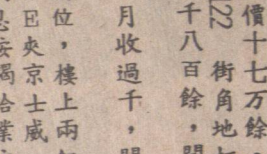 價十七万餘
22 街角地
千八百餘，
月收過千，
位，樓上兩
E央京士威